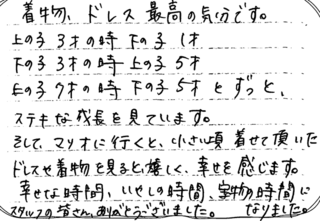 着物、ドレス 最高の気分です。
上の子 3才の時 下の子 1才
下の子 3才の時 上の子 5才
上の子 7才の時 下の子 5才 と ずっと、
ステキな成長を見ています。
そして、マリオに行くと、小さい頃 着せて頂いた
ドレスや着物を見ると、嬉しく、幸せを感じます。
幸せな時間、いやしの時間、宝物の時間に
スタッフの皆さん、ありがとうございました。 なりました。